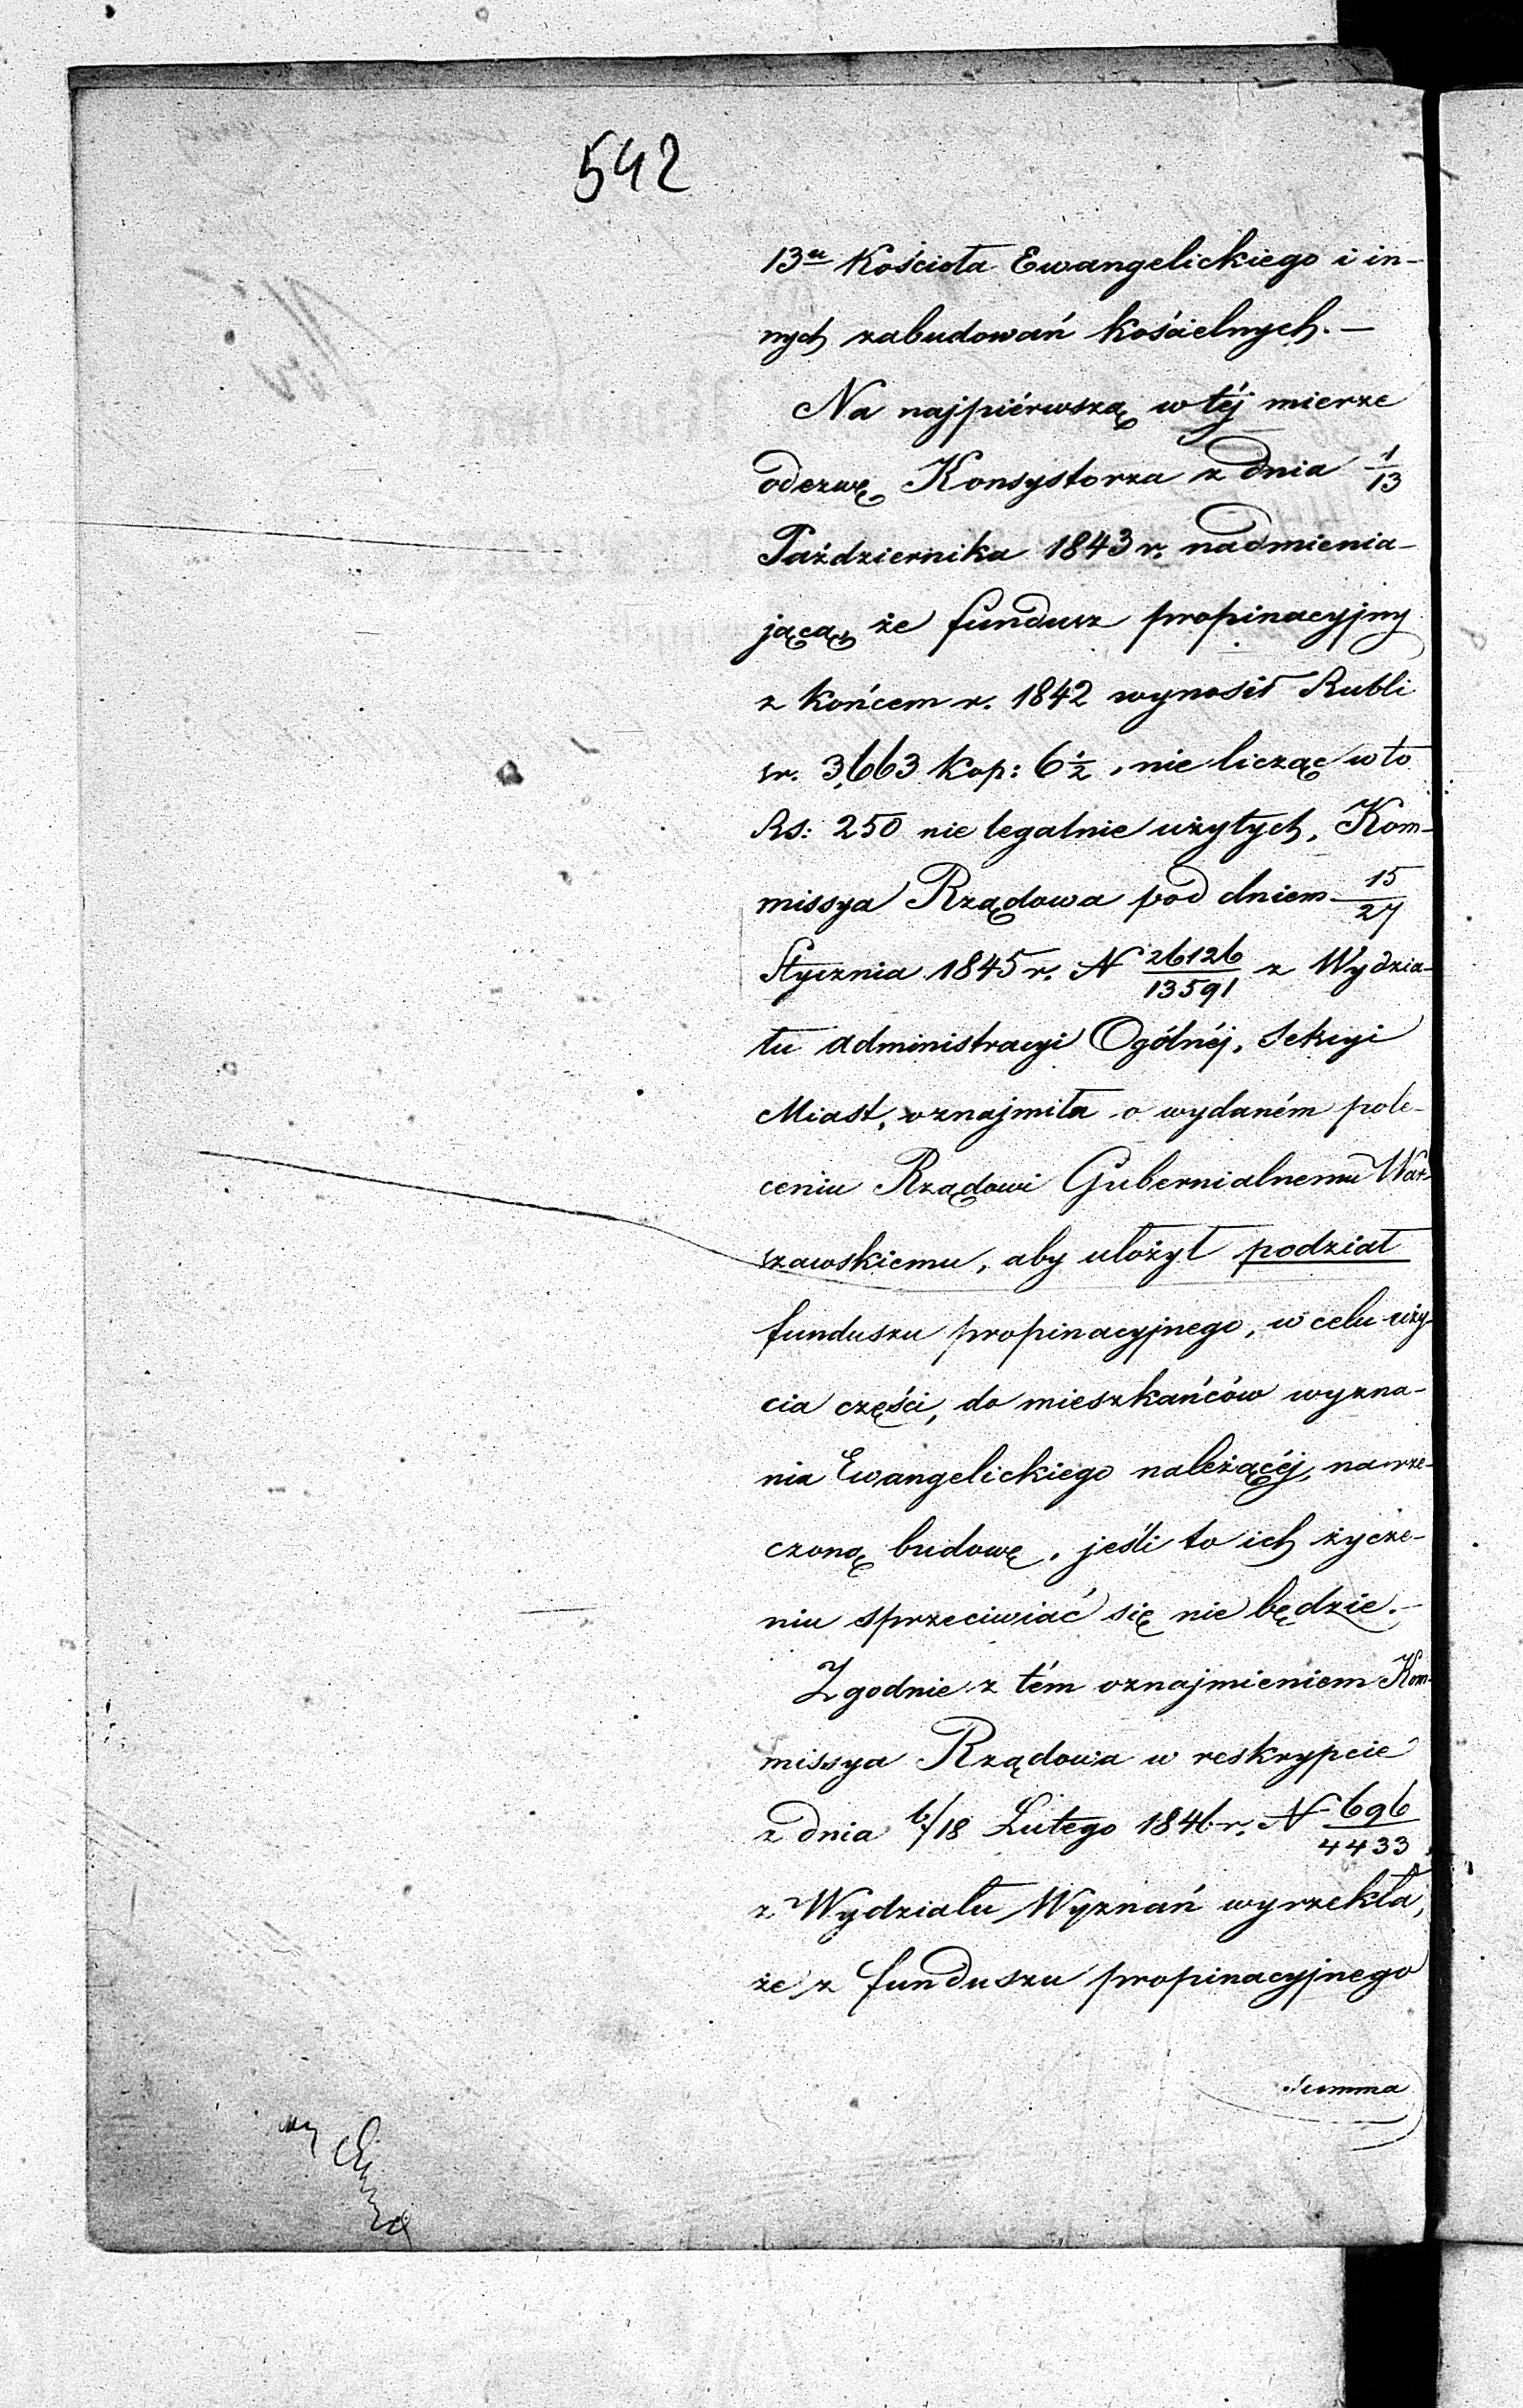 542
13u Kościoła Ewangelickiego i in-
nych zabudowań kościelnych. —
Na najpiérwszą w téj mierze
odezwę Konsystorza z dnia 1/13
Października 1843 r. nadmienia-
jącą, że fundusz propinacyjny
z końcem r. 1842 wynosił Rubli
sr. 3,663 kop: 6 1/2, nie licząc w to
Rs: 250 nie legalnie użytych, Kom-
missya Rządowa pod dniem 15/27
Stycznia 1845 r. N 26126/13591 z Wydzia-
łu Administracyi Ogólnéj, Sekcyi
Miast, oznajmiła o wydaném pole-
ceniu Rządowi Gubernialnemu War-
szawskiemu, aby ułożył podział
funduszu propinacyjnego, w celu uży-
cia części, do mieszkańców wyzna-
nia Ewangelickiego należącéj, na rze-
czoną budowę, jeśli to ich życze-
niu sprzeciwiać się nie będzie. —
Zgodnie z tém oznajmieniem Kom-
missya Rządowa w reskrypcie
z dnia 6/18 Lutego 1846 r. N 696/4433,
z Wydziału Wyznań wyrzekła,
że z funduszu propinacyjnego
Summa